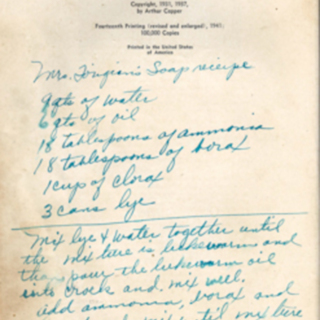 Copyright, 1931, 1937,
by Arthur Capper
Fourteenth Printing (revised and enlarged), 1941,
100,000 Copies
Printed in the United States
of America
Mrs. Soap receipe
9 qts of water
6 qts of oil
18 tablespoons of ammonia
18 tablespoons of borax
1 cup of clorax
3 cans lye
Mix lye & water together until
the mixture is lukewarm and
then pour the lukewarm oil
into crock and mix well.
add ammonia, borax and
mixture